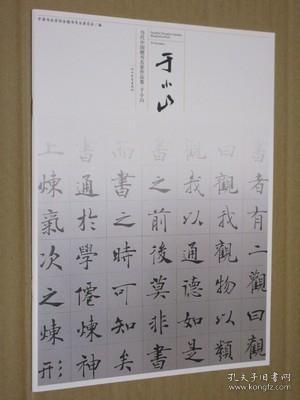 中国书法家协会楷书专业委员会/编
当代中国楷书名家作品集·于小山
于小山
書者有二觀曰觀
曰觀我觀物以類
觀我以通德如是
書之前後莫非書
而書之時可知矣
書通於學僊煉神
上煉氣次之煉形
孔夫子旧书网